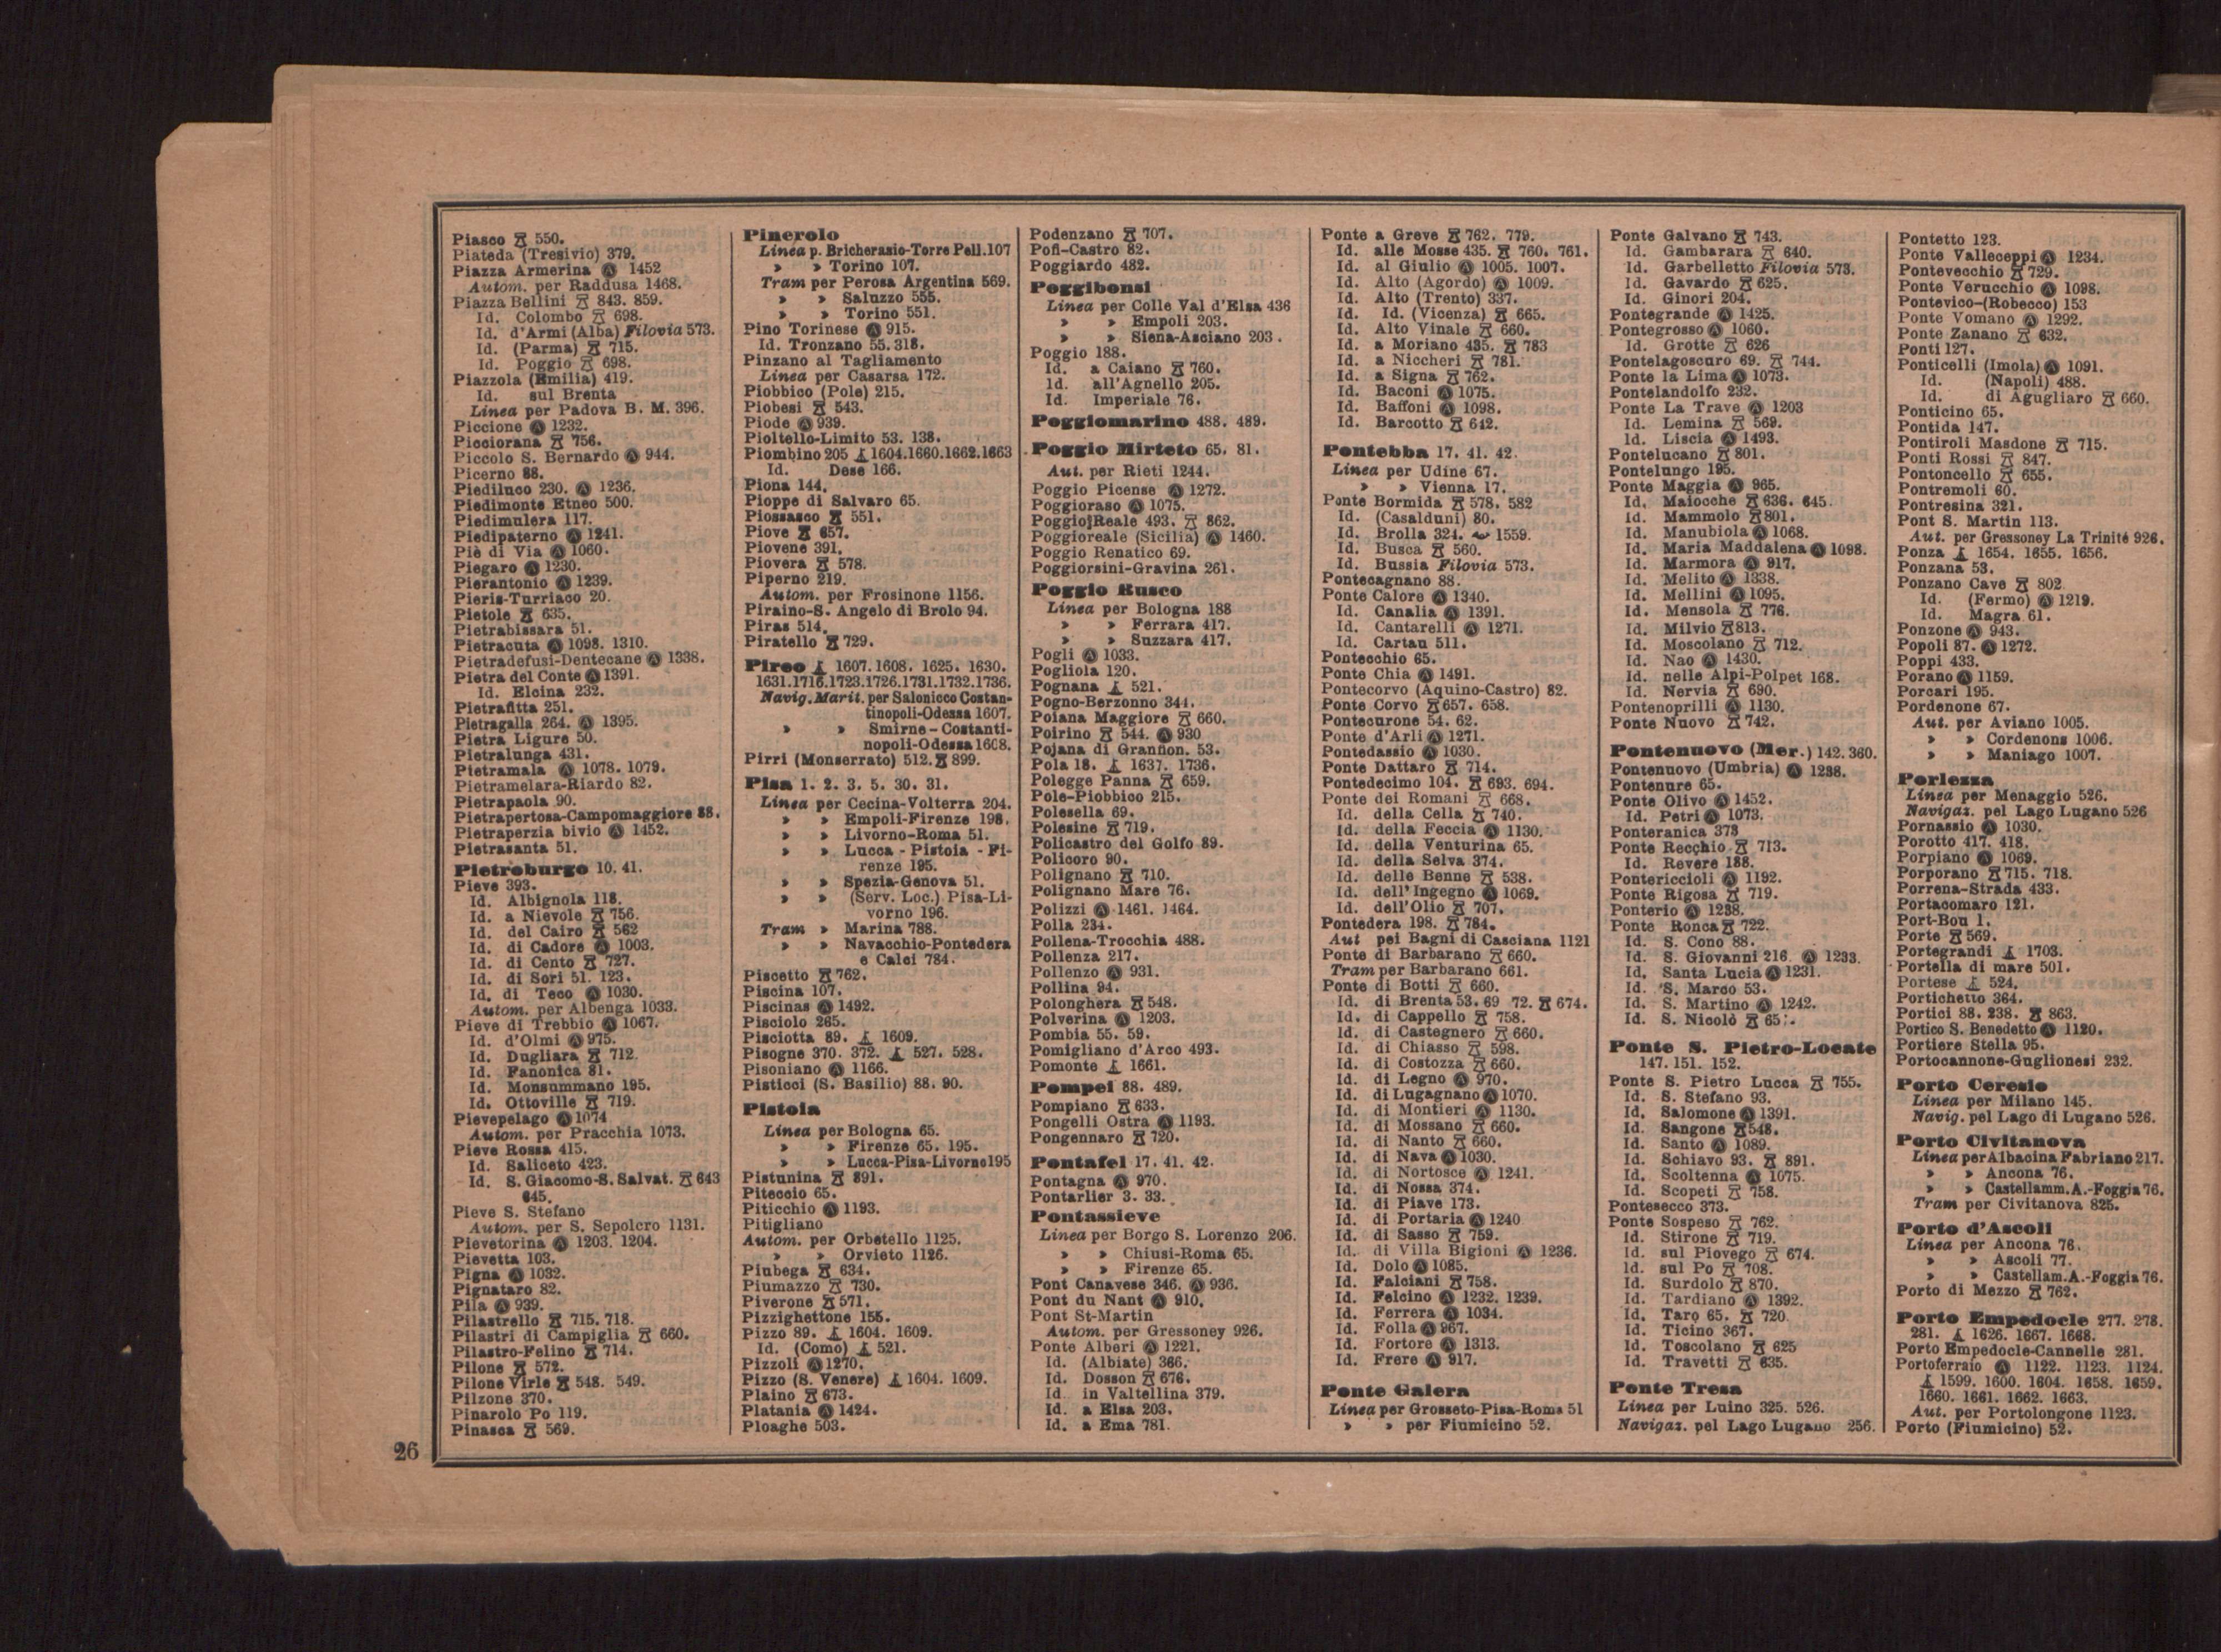 Piasco 550.
Piateda (Tresivio) 379.
Piazza Armerina Ⓐ 1452
Autom. per Raddusa 1468.
Piazza Bellini 843. 859.
Id. Colombo 698.
Id. d'Armi (Alba) Filovia 573.
Id. (Parma) 715.
Id. Poggio 698.
Piazzola (Emilia) 419.
Id. sul Brenta
Linea per Padova B. M. 396.
Piccione Ⓐ 1232.
Picciorana 756.
Piccolo S. Bernardo Ⓐ 944.
Picerno 88.
Piediluco 230. Ⓐ 1236.
Piedimonte Etneo 500.
Piedimulera 117.
Piedipaterno Ⓐ 1241.
Piè di Via Ⓐ 1060.
Piegaro Ⓐ 1230.
Pierantonio Ⓐ 1239.
Pieris-Turriaco 20.
Pietole 635.
Pietrabissara 51.
Pietracuta Ⓐ 1098. 1310.
Pietradefusi-Dentecane Ⓐ 1338.
Pietra del Conte Ⓐ 1391.
Id. Elcina 232.
Pietrafitta 251.
Pietragalla 264. Ⓐ 1395.
Pietra Ligure 50.
Pietralunga 431.
Pietramala Ⓐ 1078. 1079.
Pietramelara-Riardo 82.
Pietrapaola 90.
Pietrapertosa-Campomaggiore 88.
Pietraperzia bivio Ⓐ 1452.
Pietrasanta 51.
Pietroburgo 10. 41.
Pieve 393.
Id. Albignola 118.
Id. a Nievole 756.
Id. del Cairo 562
Id. di Cadore Ⓐ 1003.
Id. di Cento 727.
Id. di Sori 51. 123.
Id. di Teco Ⓐ 1030.
Autom. per Albenga 1033.
Pieve di Trebbio Ⓐ 1067.
Id. d'Olmi Ⓐ 975.
Id. Dugliara 712.
Id. Fanonica 81.
Id. Monsummano 195.
Id. Ottoville 719.
Pievepelago Ⓐ 1074
Autom. per Pracchia 1073.
Pieve Rossa 415.
Id. Saliceto 423.
Id. S. Giacomo-S. Salvat. 643
645.
Pieve S. Stefano
Autom. per S. Sepolcro 1131.
Pievetorina Ⓐ 1203. 1204.
Pievetta 103.
Pigna Ⓐ 1032.
Pignataro 82.
Pila Ⓐ 939.
Pilastrello 715. 718.
Pilastri di Campiglia 660.
Pilastro-Felino 714.
Pilone 572.
Pilone Virle 548. 549.
Pilzone 370.
Pinarolo Po 119.
Pinasca 569.
Pinerolo
Linea p. Bricherasio-Torre Pell. 107
» » Torino 107.
Tram per Perosa Argentina 569.
» » Saluzzo 555.
» » Torino 551.
Pino Torinese Ⓐ 915.
Id. Tronzano 55. 318.
Pinzano al Tagliamento
Linea per Casarsa 172.
Piobbico (Pole) 215.
Piobesi 543.
Piode Ⓐ 939.
Pioltello-Limito 53. 138.
Piombino 205 1604.1660.1662.1663
Id. Dese 166.
Piona 144.
Pioppe di Salvaro 65.
Piossasco 551.
Piove 657.
Piovene 391.
Piovera 578.
Piperno 219.
Autom. per Frosinone 1156.
Piraino-S. Angelo di Brolo 94.
Piras 514.
Piratello 729.
Pireo 1607. 1608. 1625. 1630.
1631.1716.1723.1726.1731.1732.1736.
Navig. Marit. per Salonicco Costan-
tinopoli-Odessa 1607.
» » Smirne-Costanti-
nopoli-Odessa 1608.
Pirri (Monserrato) 512. 899.
Pisa 1. 2. 3. 5. 30. 31.
Linea per Cecina-Volterra 204.
» » Empoli-Firenze 198.
» » Livorno-Roma 51.
» » Lucca - Pistoia - Fi-
renze 195.
» » Spezia-Genova 51.
» » (Serv. Loc.) Pisa-Li-
vorno 196.
Tram » Marina 788.
» » Navacchio-Pontedera
e Calci 784.
Piscetto 762.
Piscina 107.
Piscinas Ⓐ 1492.
Pisciolo 265.
Pisciotta 89. 1609.
Pisogne 370. 372. 527. 528.
Pisoniano Ⓐ 1166.
Pisticci (S. Basilio) 88. 90.
Pistoia
Linea per Bologna 65.
» » Firenze 65. 195.
» » Lucca-Pisa-Livorno 195
Pistunina 891.
Piteccio 65.
Piticchio Ⓐ 1193.
Pitigliano
Autom. per Orbetello 1125.
» » Orvieto 1126.
Piubega 634.
Piumazzo 730.
Piverone 571.
Pizzighettone 155.
Pizzo 89. 1604. 1609.
Id. (Como) 521.
Pizzoli Ⓐ 1270.
Pizzo (S. Venere) 1604. 1609.
Plaino 673.
Platania Ⓐ 1424.
Ploaghe 503.
Podenzano 707.
Pofi-Castro 82.
Poggiardo 482.
Poggibonsi
Linea per Colle Val d'Elsa 436
» » Empoli 203.
» » Siena-Asciano 203.
Poggio 188.
Id. a Caiano 760.
Id. all'Agnello 205.
Id. Imperiale 76.
Poggiomarino 488. 489.
Poggio Mirteto 65. 81.
Aut. per Rieti 1244.
Poggio Picense Ⓐ 1272.
Poggioraso Ⓐ 1075.
Poggio Reale 493. 862.
Poggioreale (Sicilia) Ⓐ 1460.
Poggio Renatico 69.
Poggiorsini-Gravina 261.
Poggio Rusco
Linea per Bologna 188
» » Ferrara 417.
» » Suzzara 417.
Pogli Ⓐ 1033.
Pogliola 120.
Pognana 521.
Pogno-Berzonno 344.
Poiana Maggiore 660.
Poirino 544. Ⓐ 930
Pojana di Granfion. 53.
Pola 18. 1637. 1736.
Polegge Panna 659.
Pole-Piobbico 215.
Polesella 69.
Polesine 719.
Policastro del Golfo 89.
Policoro 90.
Polignano 710.
Polignano Mare 76.
Polizzi Ⓐ 1461. 1464.
Polla 234.
Pollena-Trocchia 488.
Pollenza 217.
Pollenzo Ⓐ 931.
Pollina 94.
Polonghera 548.
Polverina Ⓐ 1203.
Pombia 55. 59.
Pomigliano d'Arco 493.
Pomonte 1661.
Pompei 88. 489.
Pompiano 633.
Pongelli Ostra Ⓐ 1193.
Pongennaro 720.
Pontafel 17. 41. 42.
Pontagna Ⓐ 970.
Pontarlier 3. 33.
Pontassieve
Linea per Borgo S. Lorenzo 206.
» » Chiusi-Roma 65.
» » Firenze 65.
Pont Canavese 346. Ⓐ 936.
Pont du Nant Ⓐ 910.
Pont St-Martin
Autom. per Gressoney 926.
Ponte Alberi Ⓐ 1221.
Id. (Albiate) 366.
Id. Dosson 676.
Id. in Valtellina 379.
Id. a Elsa 203.
Id. a Ema 781.
Ponte a Greve 762. 779.
Id. alle Mosse 435. 760. 761.
Id. al Giulio Ⓐ 1005. 1007.
Id. Alto (Agordo) Ⓐ 1009.
Id. Alto (Trento) 337.
Id. Id. (Vicenza) 665.
Id. Alto Vinale 660.
Id. a Moriano 435. 783
Id. a Niccheri 781.
Id. a Signa 762.
Id. Baconi Ⓐ 1075.
Id. Baffoni Ⓐ 1098.
Id. Barcotto 642.
Pontebba 17. 41. 42.
Linea per Udine 67.
» » Vienna 17.
Ponte Bormida 578. 582
Id. (Casalduni) 80.
Id. Brolla 324. 1559.
Id. Busca 560.
Id. Bussia Filovia 573.
Pontecagnano 88.
Ponte Calore Ⓐ 1340.
Id. Canalia Ⓐ 1391.
Id. Cantarelli Ⓐ 1271.
Id. Cartau 511.
Pontecchio 65.
Ponte Chia Ⓐ 1491.
Pontecorvo (Aquino-Castro) 82.
Ponte Corvo 657. 658.
Pontecurone 54. 62.
Ponte d'Arli Ⓐ 1271.
Pontedassio Ⓐ 1030.
Ponte Dattaro 714.
Pontedecimo 104. 693. 694.
Ponte dei Romani 668.
Id. della Cella 740.
Id. della Feccia Ⓐ 1130.
Id. della Venturina 65.
Id. della Selva 374.
Id. delle Benne 538.
Id. dell'Ingegno Ⓐ 1069.
Id. dell'Olio 707.
Pontedera 198. 784.
Aut pei Bagni di Casciana 1121
Ponte di Barbarano 660.
Tram per Barbarano 661.
Ponte di Botti 660.
Id. di Brenta 53. 69 72. 674.
Id. di Cappello 758.
Id. di Castegnero 660.
Id. di Chiasso 598.
Id. di Costozza 660.
Id. di Legno Ⓐ 970.
Id. di Lugagnano Ⓐ 1070.
Id. di Montieri Ⓐ 1130.
Id. di Mossano 660.
Id. di Nanto 660.
Id. di Nava Ⓐ 1030.
Id. di Nortosce Ⓐ 1241.
Id. di Nossa 374.
Id. di Piave 173.
Id. di Portaria Ⓐ 1240
Id. di Sasso 759.
Id. di Villa Bigioni Ⓐ 1236.
Id. Dolo Ⓐ 1085.
Id. Falciani 758.
Id. Felcino Ⓐ 1232. 1239.
Id. Ferrera Ⓐ 1034.
Id. Folla Ⓐ 967.
Id. Fortore Ⓐ 1313.
Id. Frere Ⓐ 917.
Ponte Galera
Linea per Grosseto-Pisa-Roma 51
» » per Fiumicino 52.
Ponte Galvano 743.
Id. Gambarara 640.
Id. Garbelletto Filovia 573.
Id. Gavardo 625.
Id. Ginori 204.
Pontegrande Ⓐ 1425.
Pontegrosso Ⓐ 1060.
Id. Grotte 626
Pontelagoscuro 69. 744.
Ponte la Lima Ⓐ 1073.
Pontelandolfo 232.
Ponte La Trave Ⓐ 1203
Id. Lemina 569.
Id. Liscia Ⓐ 1493.
Pontelucano 801.
Pontelungo 195.
Ponte Maggia Ⓐ 965.
Id. Maiocche 636. 645.
Id. Mammolo 801.
Id. Manubiola Ⓐ 1068.
Id. Maria Maddalena Ⓐ 1098.
Id. Marmora Ⓐ 917.
Id. Melito Ⓐ 1338.
Id. Mellini Ⓐ 1095.
Id. Mensola 776.
Id. Milvio 813.
Id. Moscolano 712.
Id. Nao Ⓐ 1430.
Id. nelle Alpi-Polpet 168.
Id. Nervia 690.
Pontenoprilli Ⓐ 1130.
Ponte Nuovo 742.
Pontenuovo (Mer.) 142. 360.
Pontenuovo (Umbria) Ⓐ 1238.
Pontenure 65.
Ponte Olivo Ⓐ 1452.
Id. Petri Ⓐ 1073.
Ponteranica 373
Ponte Recchio 713.
Id. Revere 188.
Pontericcioli Ⓐ 1192.
Ponte Rigosa 719.
Ponterio Ⓐ 1238.
Ponte Ronca 722.
Id. S. Cono 88.
Id. S. Giovanni 216. Ⓐ 1233.
Id. Santa Lucia Ⓐ 1231.
Id. S. Marco 53.
Id. S. Martino Ⓐ 1242.
Id. S. Nicolò
Ponte S. Pietro-Locate
147. 151. 152.
Ponte S. Pietro Lucca 755.
Id. S. Stefano 93.
Id. Salomone Ⓐ 1391.
Id. Sangone 548.
Id. Santo Ⓐ 1089.
Id. Schiavo 93. 891.
Id. Scoltenna Ⓐ 1075.
Id. Scopeti 758.
Pontesecco 373.
Ponte Sospeso 762.
Id. Stirone 719.
Id. sul Piovego 674.
Id. sul Po 708.
Id. Surdolo 870.
Id. Tardiano Ⓐ 1392.
Id. Taro 65. 720.
Id. Ticino 367.
Id. Toscolano 625
Id. Travetti 635.
Ponte Tresa
Linea per Luino 325. 526.
Navigaz. pel Lago Lugano 256.
Pontetto 123.
Ponte Valleceppi Ⓐ 1234.
Pontevecchio 729.
Ponte Verucchio Ⓐ 1098.
Pontevico-(Robecco) 153
Ponte Vomano Ⓐ 1292.
Ponte Zanano 632.
Ponti 127.
Ponticelli (Imola) Ⓐ 1091.
Id. (Napoli) 488.
Id. di Agugliaro 660.
Ponticino 65.
Pontida 147.
Pontiroli Masdone 715.
Ponti Rossi 847.
Pontoncello 655.
Pontremoli 60.
Pontresina 321.
Pont S. Martin 113.
Aut. per Gressoney La Trinité 926.
Ponza 1654. 1655. 1656.
Ponzana 53.
Ponzano Cave 802
Id. (Fermo) Ⓐ 1219.
Id. Magra 61.
Ponzone Ⓐ 943.
Popoli 87. Ⓐ 1272.
Poppi 433.
Porano Ⓐ 1159.
Porcari 195.
Pordenone 67.
Aut. per Aviano 1005.
» » Cordenons 1006.
» » Maniago 1007.
Porlezza
Linea per Menaggio 526.
Navigaz. pel Lago Lugano 526
Pornassio Ⓐ 1030.
Porotto 417. 418.
Porpiano Ⓐ 1069.
Porporano 715. 718.
Porrena-Strada 433.
Portacomaro 121.
Port-Bou 1.
Porte 569.
Portegrandi 1703.
Portella di mare 501.
Portese 524.
Portichetto 364.
Portici 88. 238. 863.
Portico S. Benedetto Ⓐ 1120.
Portiere Stella 95.
Portocannone-Guglionesi 232.
Porto Ceresio
Linea per Milano 145.
Navig. pel Lago di Lugano 526.
Porto Civitanova
Linea per Albacina Fabriano 217.
» » Ancona 76.
» » Castellamm.A.-Foggia 76.
Tram per Civitanova 825.
Porto d'Ascoli
Linea per Ancona 76.
» » Ascoli 77.
» » Castellam.A.-Foggia 76.
Porto di Mezzo 762.
Porto Empedocle 277. 278.
281. 1626. 1667. 1668.
Porto Empedocle-Cannelle 281.
Portoferraio Ⓐ 1122. 1123. 1124.
1599. 1600. 1604. 1658. 1659.
1660. 1661. 1662. 1663.
Aut. per Portolongone 1123.
Porto (Fiumicino) 52.
26